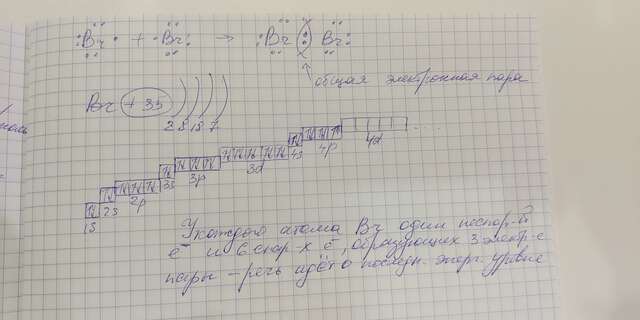 Br + Br → Br : Br
общая электронная пара
Br +35
2 8 18 7
4s 4p 4d ....
3s 3p 3d
1s 2s 2p
У каждого атома Br один неспар-й
ē и 6 спар-х ē, образующих 3 электр-е
пары – речь идёт о последн. энерг. уровне